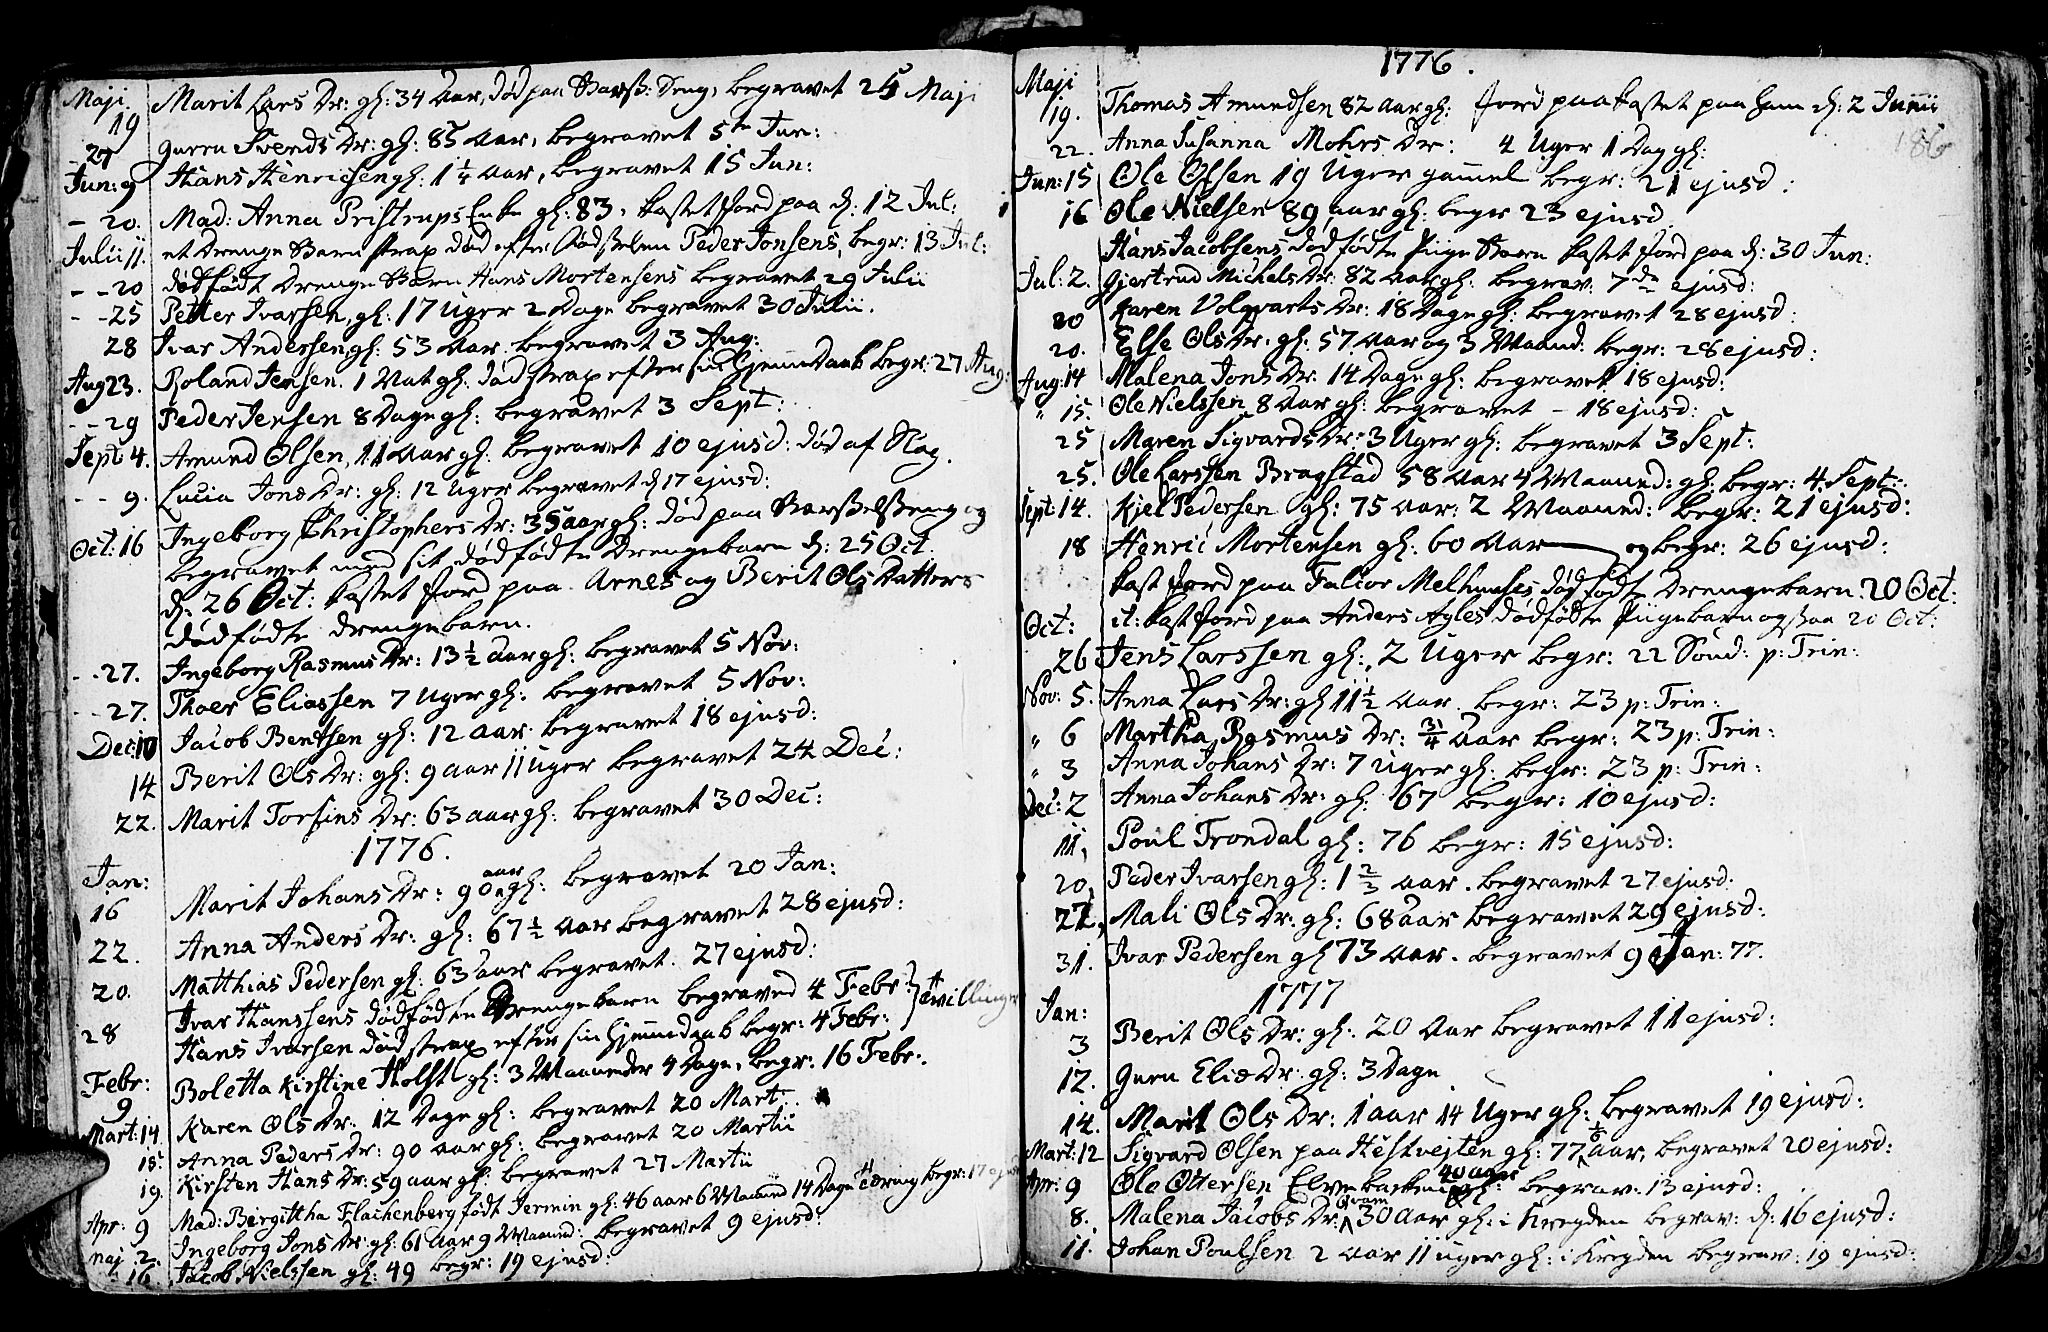 Maji 19 Marit Lars Dr: gl: 34 Aar, død paa Barsel: Seng, begravet 25 Maji
- 27 Guren Svends Dr: gl: 85 Aar, begravet 5te Jun:
Jun: 9 Hans Henricsen gl: 1 1/4 Aar, begravet 15 Jun:
- 20. Mad: Anna Pristrups Enke gl: 83, kastet Jord paa d: 12 Jul:
Julii 11. et Drenge Barn strax død efter Fødselen Peder Jonsens, begr: 13 Jul:
- - 20 dødfødt Drenge Barn Hans Mortensens begravet 29 Julii
- - 25 Petter Ivarsen, gl: 17 Uger 2 Dage begravet 30 Julii.
28 Ivar Andersen, gl: 53 Aar begravet 3 Aug:
Aug 23. Roland Jensen. 1 Nat gl: død strax efter sin Hjemme Daab begr: 27 Aug:
- - 29 Peder Jensen 8 Dage gl: begravet 3 Sept:
Sept 4. Amund Olsen, 11 Aar gl: begravet 10 ejusd: død af Slag.
- - 9. Lucia Jons Dr: gl: 12 Uger begravet d 17 ejusd:
Oct: 16 Ingeborg Christophers Dr: 35 aar gl: død paa Barselseng og
begravet med sit dødfødte Drengebarn d: 25 Oct.
d: 26 Oct: kastet Jord paa Arnes og Berit Ols Datters
dødfødte drengebarn.
- - 27. Ingeborg Rasmus Dr: 13 1/2 Aar gl: begravet 5 Nov:
- - 27. Thoer Eliassen 7 Uger gl: begravet 5 Nov:
Dec: 10 Jacob Bentsen gl: 12 Aar begravet 18 ejusd:
14 Berit Ols Dr: gl: 9 aar 11 Uger begravet 24 Dec:
22. Marit Torfins Dr: 63 aar gl: begravet 30 Dec:
1776.
Jan:
16 Marit Johans Dr: 90 aar gl: begravet 20 Jan:
22. Anna Anders Dr: gl: 67 1/2 Aar begravet 28 ejusd:
20 Matthias Pedersen gl: 63 aar begravet. 27 ejusd:
Ivar Hanssens dødfødte Drengebarn begraved 4 Febr: } tvillinger
28 Hans Ivarsen død strax efter sin Hjemmedaab begr: 4 Febr:
Febr: 9 Boletta Kirstine Holst gl: 3 Maaneder 4 Dage, begr: 16 Febr:
Mart: 14 Karen Ols Dr: 12 Dage gl: begravet 20 Mart:
15 Anna Peders Dr: 90 aar gl: begravet 20 Martii
19. Kirsten Hans Dr: 59 aar gl: begravet 27 Martii
Apr: 9 Mad: Birgittha Flachenberg født Jermin gl: 46 aar 6 Maaned 14 Dage Tæring begr: 17 ejusd
maj 2. Ingeborg Jons Dr: gl: 61 Aar 9 Maaned: begravet 9 ejusd:
16 Jacob Nielssen gl: 49 begr: 19 ejusd:
1776.
186
Maji 19. Thomas Amundsen 82 Aar gl: Jord paakastet paa ham d: 2 Junii
22. Anna Susanna Mohrs Dr: 4 Uger 1 Dag gl:
Jun: 15 Ole Olsen 19 Uger gammel begr: 21 ejusd:
16 Ole Nielsen 89 aar gl: begr 23 ejusd
Hans Jacobsens dødfødte Pige Barn kastet Jord paa d: 30 Jun:
Jul: 2. Gjertrud Michels Dr: 82 Aar gl: begrav: 7de ejusd:
20 Karen Volqvarts Dr: 18 Dage gl: begravet 28 ejusd:
20. Else Ols Dr. gl: 57 Aar og 3 Maaned. begr: 28 ejusd:
Aug: 14 Malena Jons Dr: 14 Dage gl: begravet 18 ejusd:
" 15. Ole Nielssen 8 Aar gl: begravet - 18 ejusd:
25 Maren Sigvards Dr: 3 Uger gl: begravet 3 Sept:
25. Ole Larssen Bragstad 58 Aar 4 Maaned: gl: begr: 4 Sept:
Sept: 14. Kjel Pedersen gl: 75 Aar: 2 Maaned: begr: 21 ejusd:
18 Henric Mortensen gl: 60 Aar og begr: 26 ejusd:
kast Jord paa Falior Melhuses dødfødte Drengebarn. 20 Oct:
Oct: it: kast Jord paa Anders Ayles dødfødte Pigebarn ogsaa 20 Oct:
26 Jens Larssen gl: 2 Uger begr: 22 Sønd: p: Trin:
Nov: 5. Anna Lars Dr: gl 11 1/2 Aar. begr: 23 p: Trin:
" 6 Martha Rasmus Dr: 3/4 Aar begr: 23 p: Trin:
" 3 Anna Johans Dr: 7 Uger gl: begr: 23 p: Trin:
Dec: 2 Anna Johans Dr: gl: 67 begr: 10 ejusd:
11, Poul Trondal gl: 76 begr: 15 ejusd:
20, Peder Ivarsen gl: 1 2/3 Aar. begravet 27 ejusd:
22, Mali Ols Dr: gl: 68 aar begravet 29 ejusd:
31. Ivar Pedersen gl 73 Aar. begravet 9 Jan: 77.
1777
Jan:
3 Berit Ols Dr: gl: 20 Aar begravet 11 ejusd:
12. Guru Eliæ Dr: gl: 3 Dage
14. Marit Ols Dr: 1 aar 14 Uger gl: begravet 19 ejusd:
Mart: 12 Sigvard Olsen paa Hestvejten gl: 77 1/6 aar, begravet 20 ejusd:
Apr: 9 Ole Ottersen Elvebakken 40 aar gl: begrav: 13 ejusd:
8. Malena Jacobs Dr: Qvam 30 Aar gl: i Kregden begrav: d: 16 ejusd:
11. Johan Poulsen 2 Aar 11 Uger gl: i Kregden begrav: 19 ejusd: